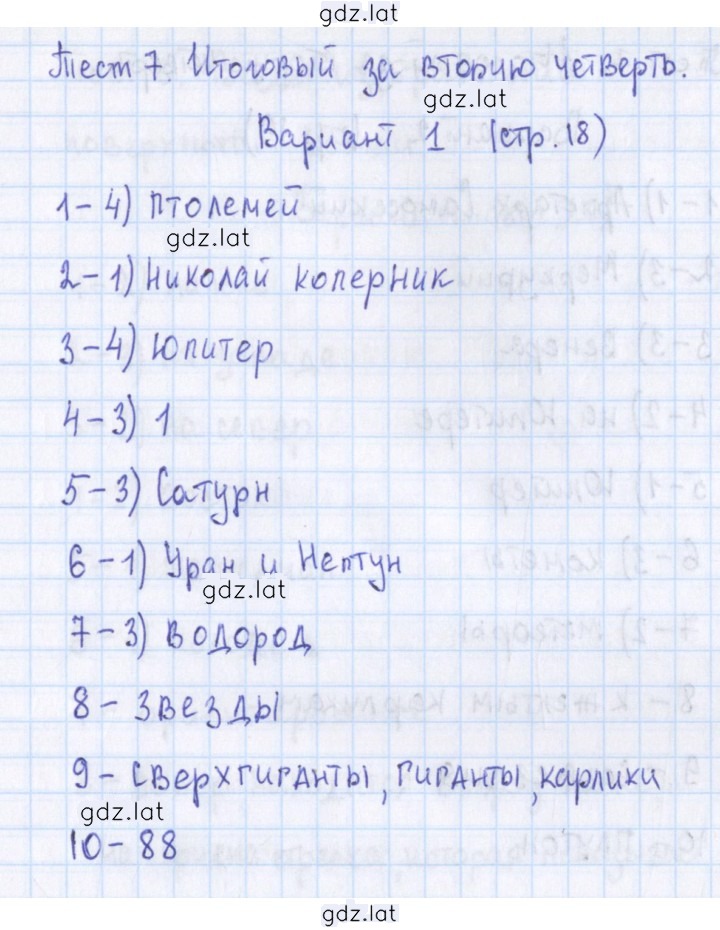 gdz.lat
Тест 7. Итоговый за вторую четверть.
gdz.lat
Вариант 1 (стр.18)
1-4) Птолемей
gdz.lat
2-1) Николай Коперник
3-4) Юпитер
4-3) 1
5-3) Сатурн
6-1) Уран и Нептун
gdz.lat
7-3) Водород
8- Звезды
9- Сверхгиганты, гиганты, карлики
gdz.lat
10-88
gdz.lat